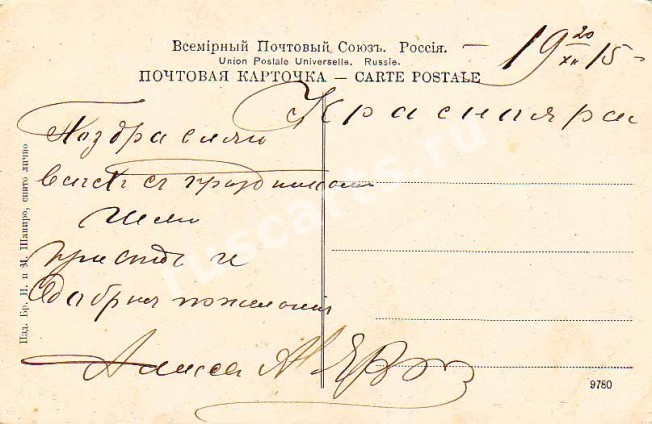 Всемірный Почтовый Союзъ. Россія.
Union Postale Universelle. Russie.
ПОЧТОВАЯ КАРТОЧКА — CARTE POSTALE
19 20/XII 15
Красноярск
Поздравляю
васъ съ праздникомъ
шлю
привѣтъ и
добрыя пожеланія
Алиса
Изд. Бр. Н. и М. Шапиро, снято лично
9780
ruscarts.ru